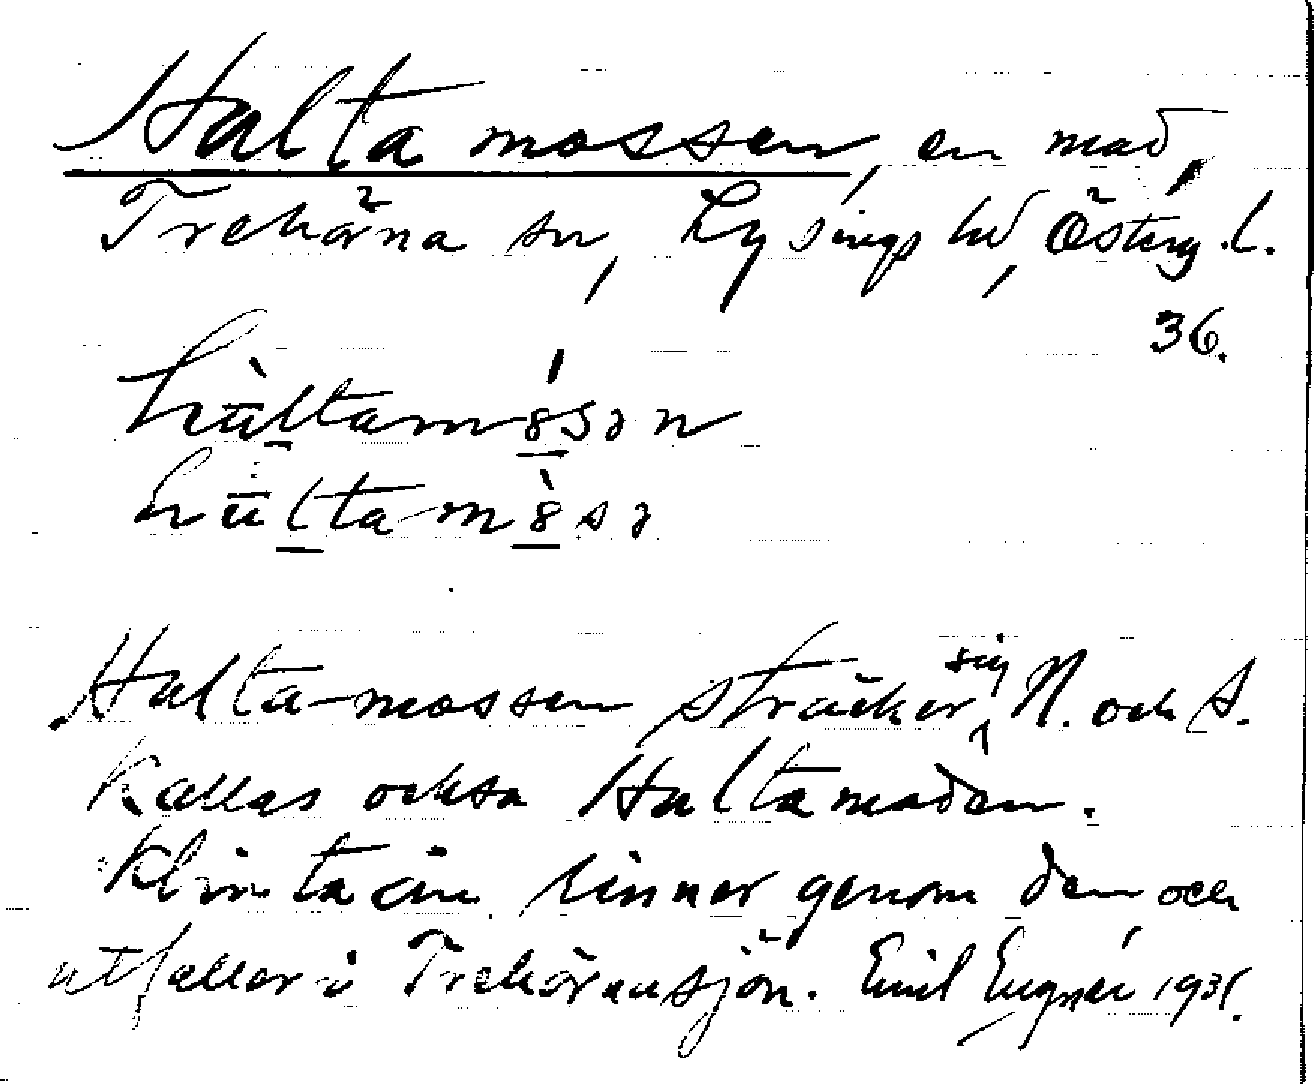 Hulta mossen, en mad,
Trehörna sn, Lysings hd, Österg. l.
36.
hu̇ltamȯsən
hūlta-mòsə
Hulta-mossen sträcker sig N. och S.
Kallas också Hultamaden.
Klintaån rinner genom den och
utfaller i Trehörnasjön. Emil Eugnér 1931.